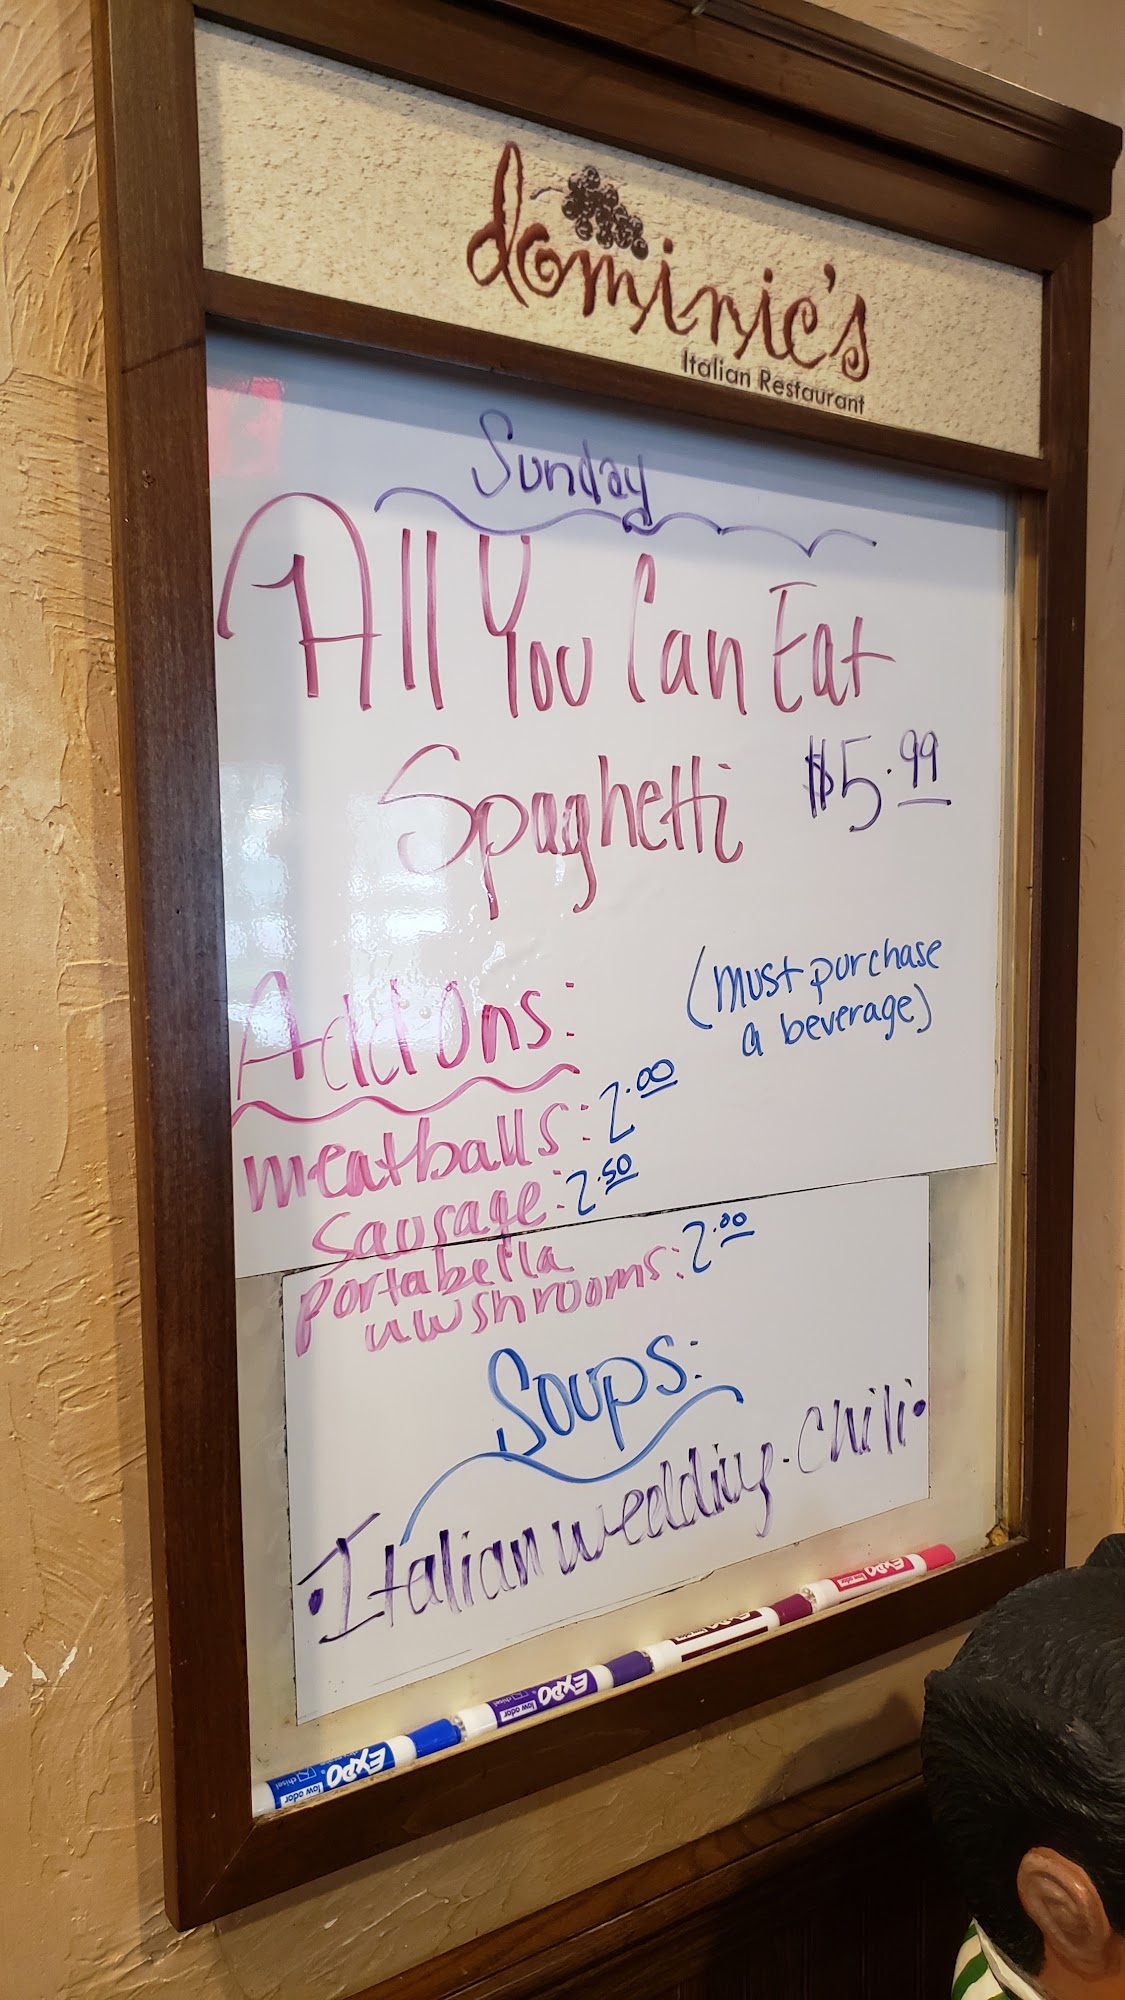 dominic's
Italian Restaurant
Sunday
All You Can Eat
Spaghetti $5.99
(must purchase
a beverage)
Add Ons:
meatballs: 2.00
Sausage: 2.50
portabella
mushrooms: 2.00
Soups:
• Italian wedding • Chili •
EXPO
low odor
chisel
EXPO
low odor
chisel
EXPO
EXPO
low odor